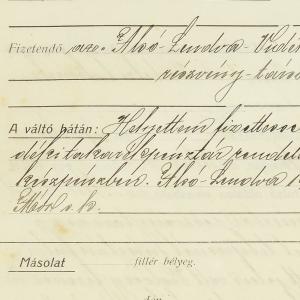 Fizetendő az Alsó-Lendva-Vidék
részvény-társ
A váltó hátán: Helyettem fizettesse
déki takarékpénztár rendele
készpénzben. Alsó-Lendva
s. k.
Másolat fillér bélyeg.